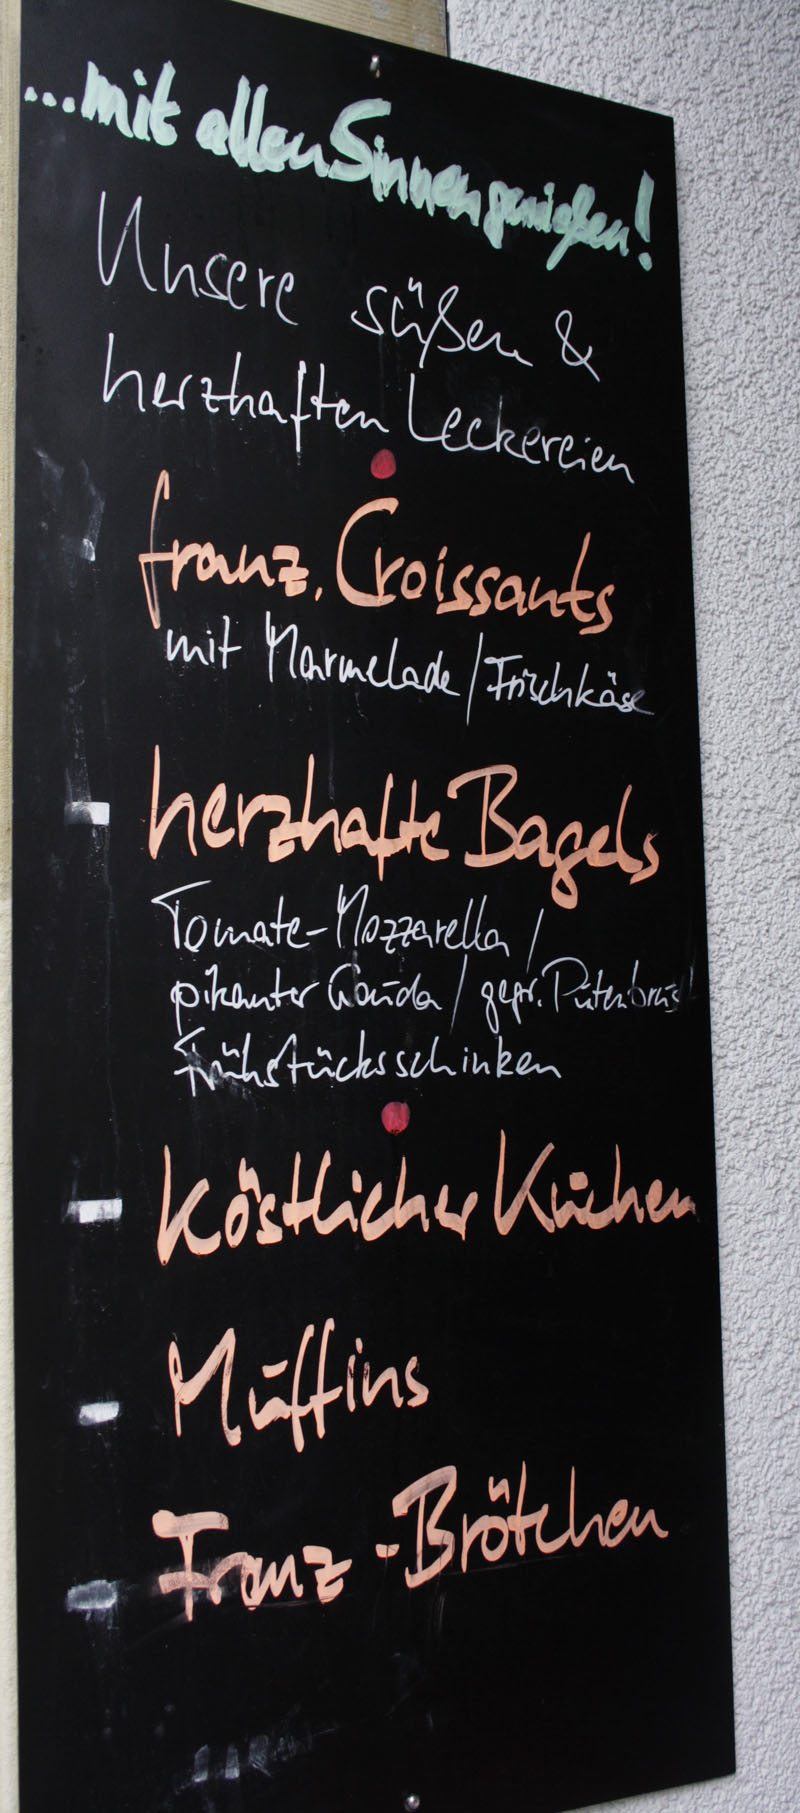 ...mit allen Sinnen genießen!
Unsere süßen &
herzhaften Leckereien
franz. Croissants
mit Marmelade / Frischkäse
herzhafte Bagels
Tomate-Mozzarella /
pikanter Gouda / gegr. Putenbrust
Frühstücksschinken
köstlicher Kuchen
Muffins
Franz-Brötchen